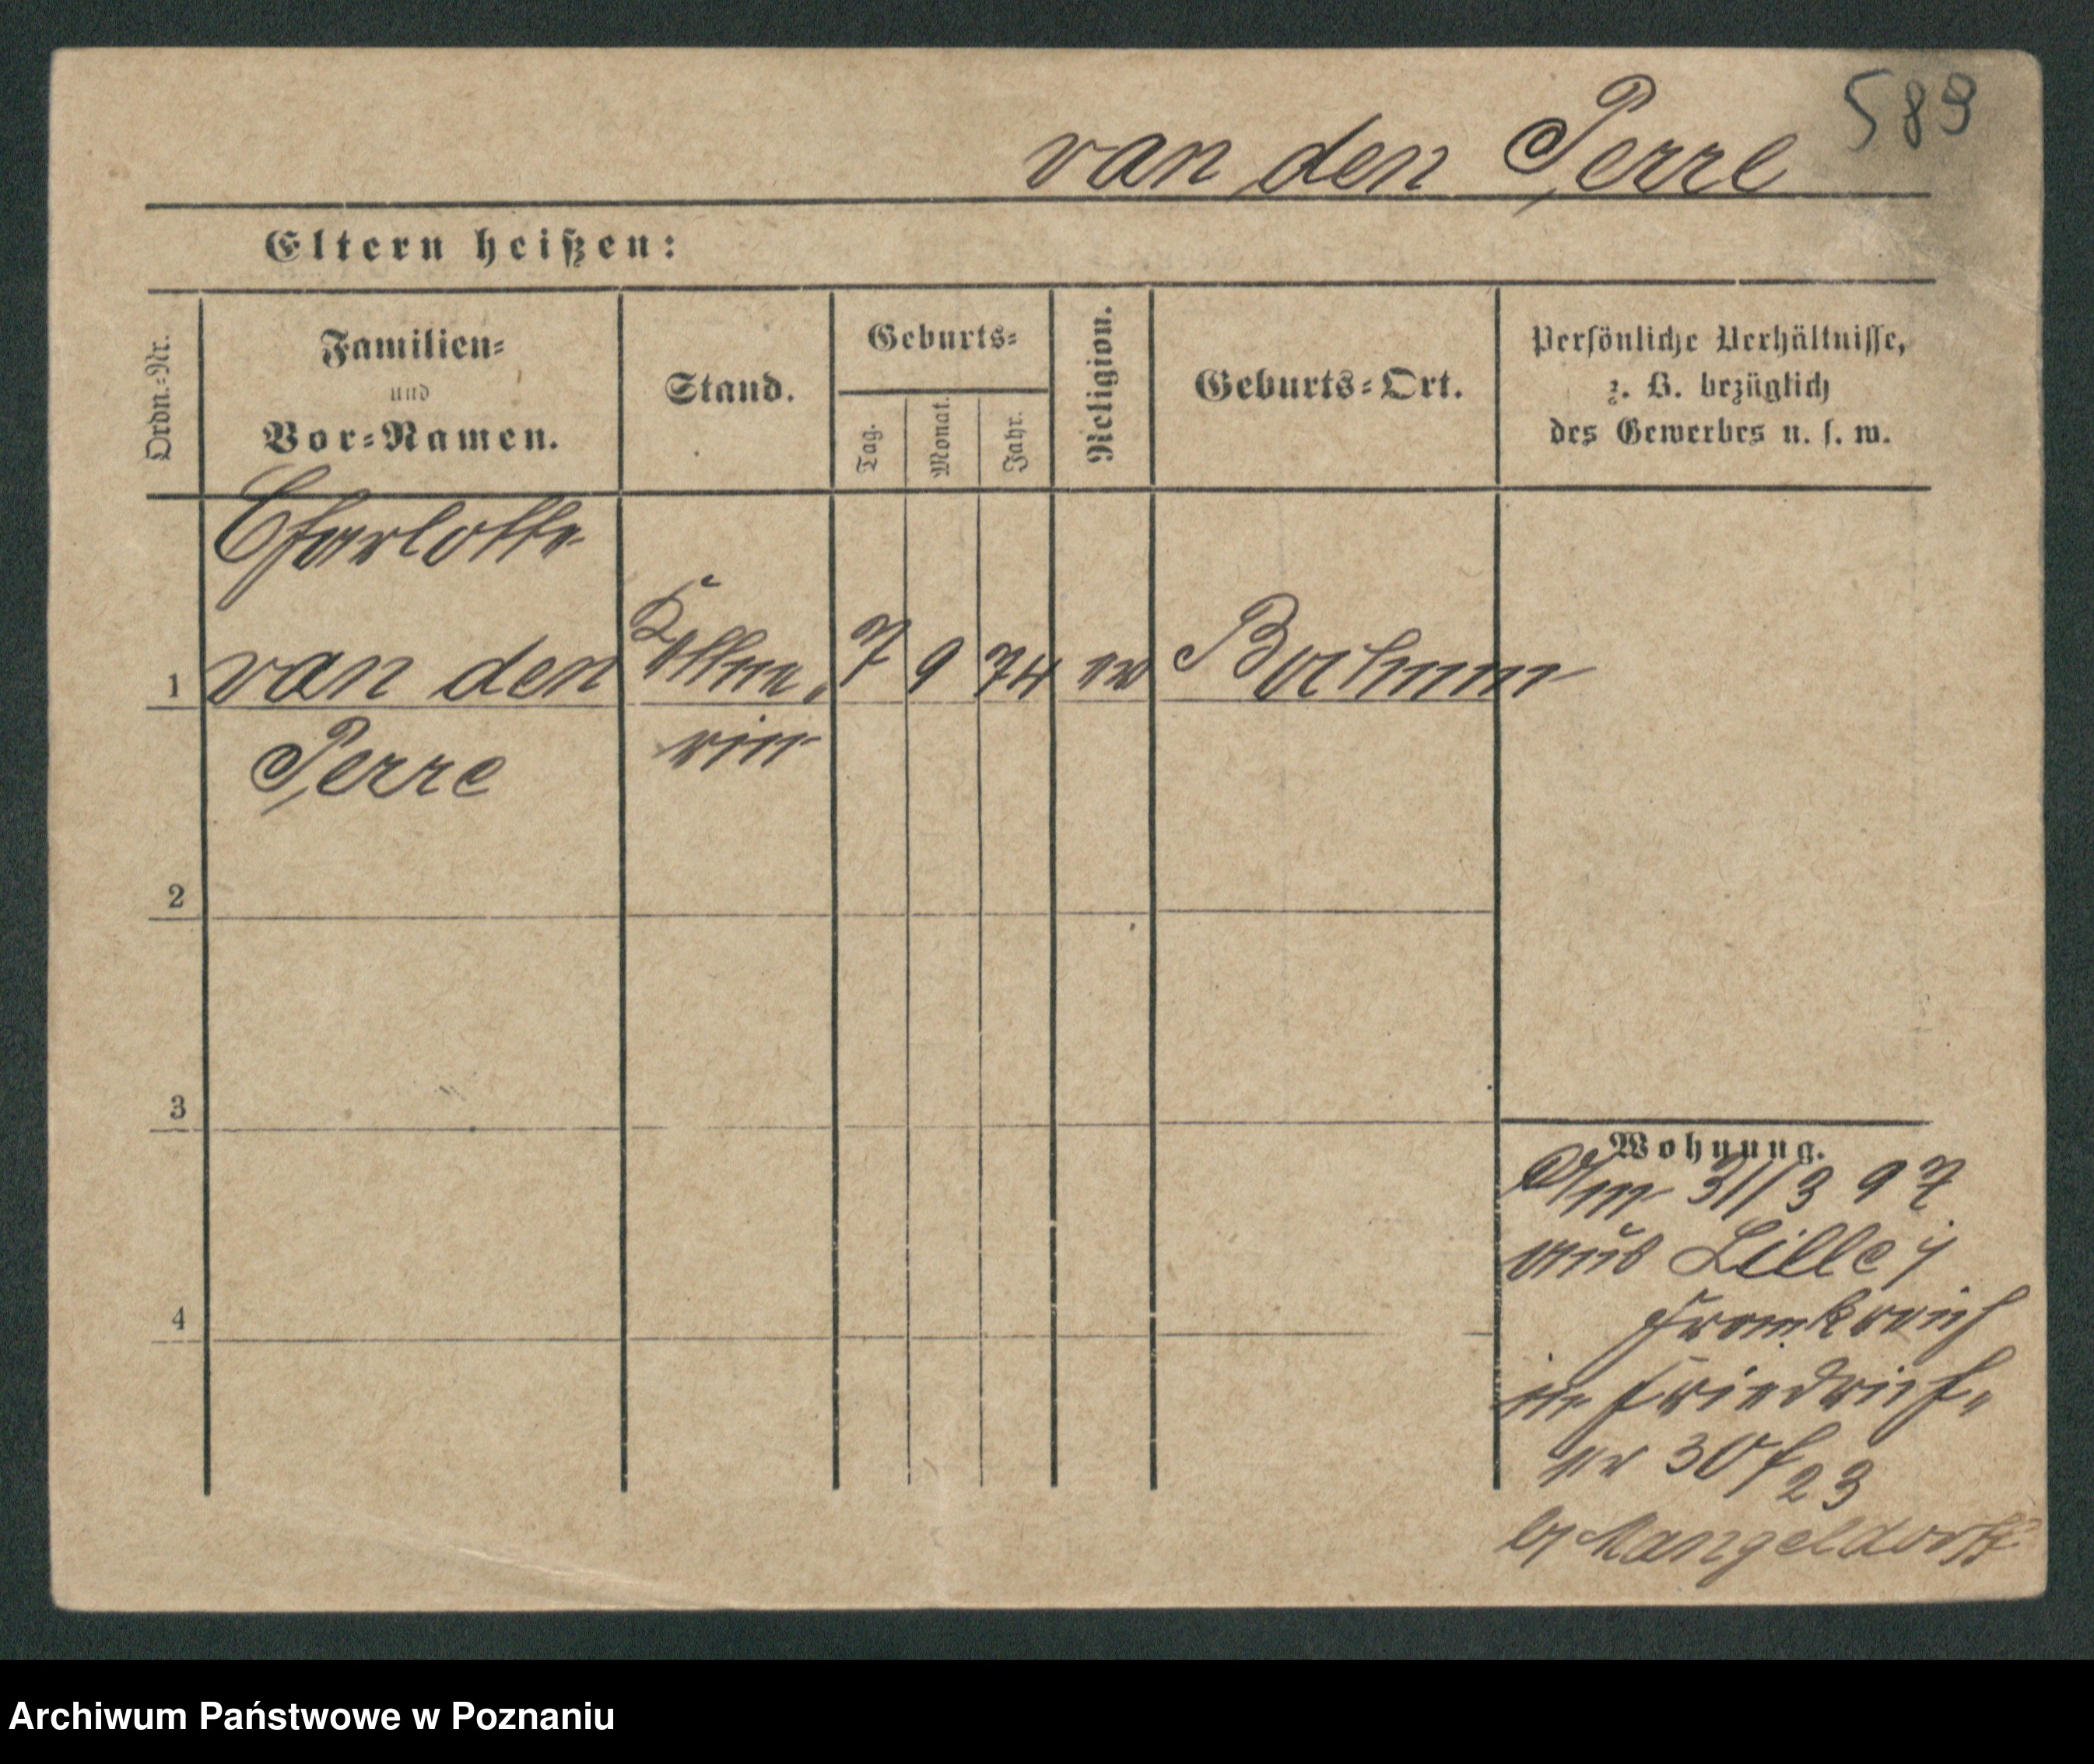 589
van den Perre
Eltern heißen:
Ordn.-Nr.
Familien-
und
Vor-Namen.
Stand.
Geburts-
Tag.
Monat.
Jahr.
Religion.
Geburts-Ort.
Persönliche Verhältnisse,
z. B. bezüglich
des Gewerbes u. s. w.
Charlotte
1 van den 7 9 74 ev Bochum
Perre
rin
2
3
4
Wohnung.
Am 31/3 97
aus Lille i
Frankreich
in Friedrich-
30
23
b/ Mangeldorff
Archiwum Państwowe w Poznaniu